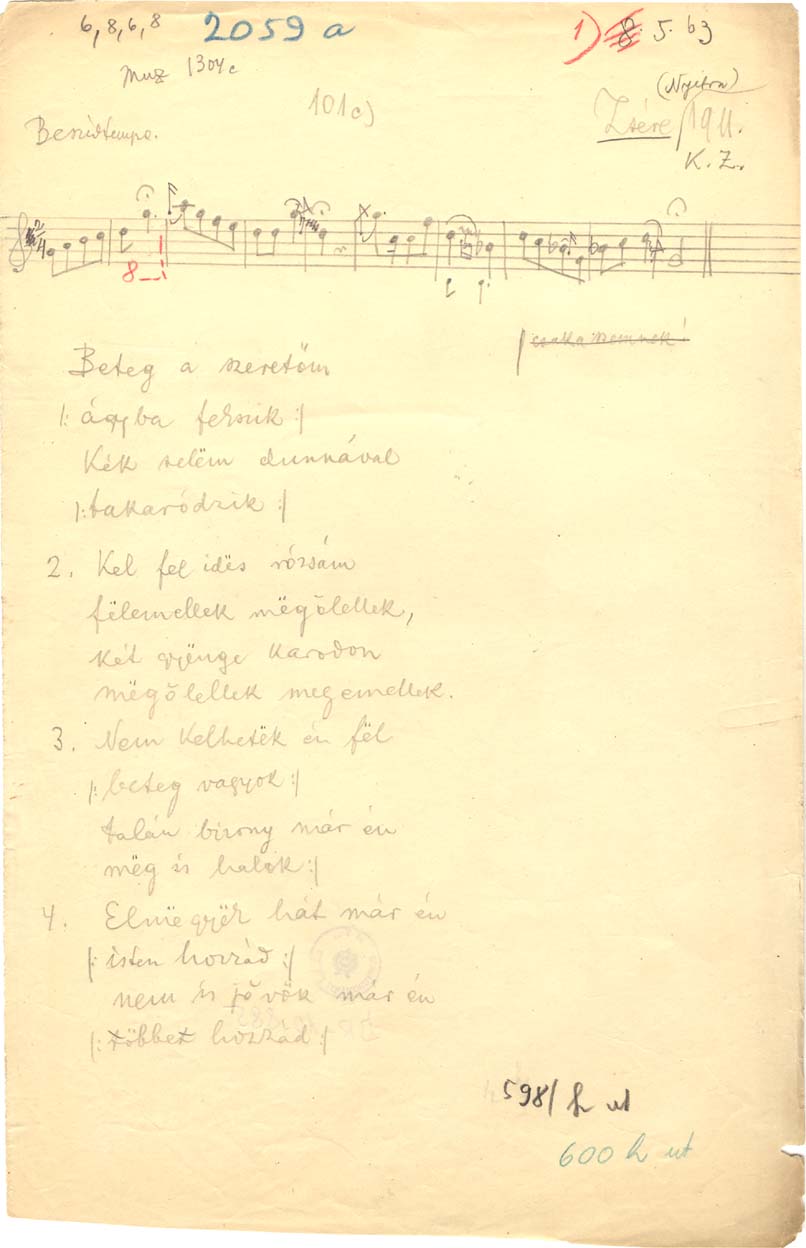 6, 8, 6, 8
2059 a
1) 8. 5. b3
Muz 1304c
101c)
(Nyitra)
Beszédtempo.
Zsére 1911.
K. Z.
2/4
8
csak a szemnek!
Beteg a szeretőm
|: ágyba fekszik :|
Kék selëm dunnával
|: takaródzik :|
2. Kel fel idës rózsám
fëlemellek mëgölellek,
két gyënge karodon
mëgölellek megemellek.
3. Nem kelhetëk én fël
|: beteg vagyok :|
talán bizony már én
mëg is halok :|
4. Elmëgyëk hát már én
|: isten hozzád :|
nem is jövök már én
|: többet hozzád :|
598/ h ut
600 h ut